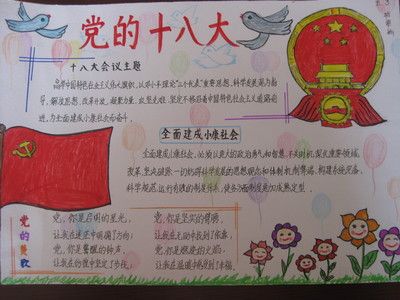 党的十八大
十八大会议主题
高举中国特色社会主义伟大旗帜，以邓小平理论"三个代表"重要思想，科学发展观为指
导，解放思想，改革开放，凝聚力量，攻坚克难，坚定不移沿着中国特色社会主义道路前
进，为全面建成小康社会而奋斗。
全面建成小康社会
全面建成小康社会，必须以更大的政治勇气和智慧，不失时机深化重要领域
改革，坚决破除一切妨碍科学发展的思想观念和体制机制弊端，构建系统完备，
科学规范，运行有效的制度体系，使各方面制度更加成熟定型。
党的赞歌
党，你是启明的星光，
让我在迷茫中明确了方向，
党，你是警醒的钟声，
让我在彷徨中坚定了步伐，
党，你是坚实的臂膀，
让我在无助中找到了依靠，
党，你是燃烧的火焰，
让我在温暖中找到了幸福。